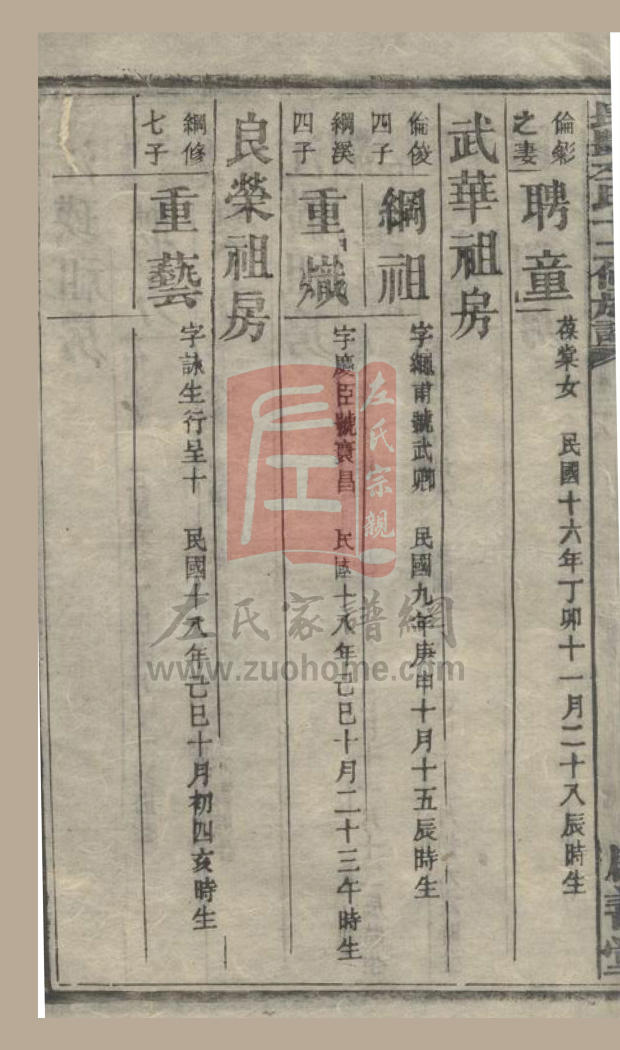 倫彰之妻
聘童
葆棠女 民國十六年丁卯十一月二十八辰時生
武華祖房
倫俊四子
綱祖
字繩甫號武卿 民國九年庚申十月十五辰時生
綱溪四子
重熾
字慶臣號賡昌 民國十八年己巳十月二十三午時生
良榮祖房
綱修七子
重藝
字詠生行呈十 民國十八年己巳十月初四亥時生
左氏宗親
左氏家譜網
www.zuohome.com